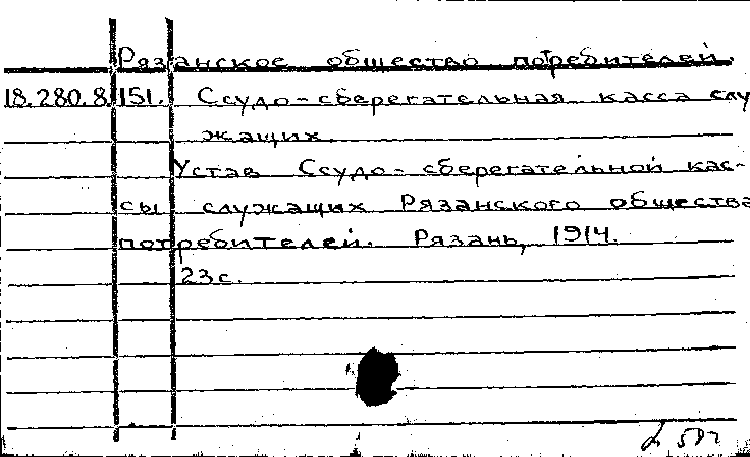 Рязанское общество потребителей.
18.280.8.151. Ссудо-сберегательная касса слу
жащих
Устав Ссудо-сберегательной кас-
сы служащих Рязанского общества
потребителей. Рязань, 1914.
23с.